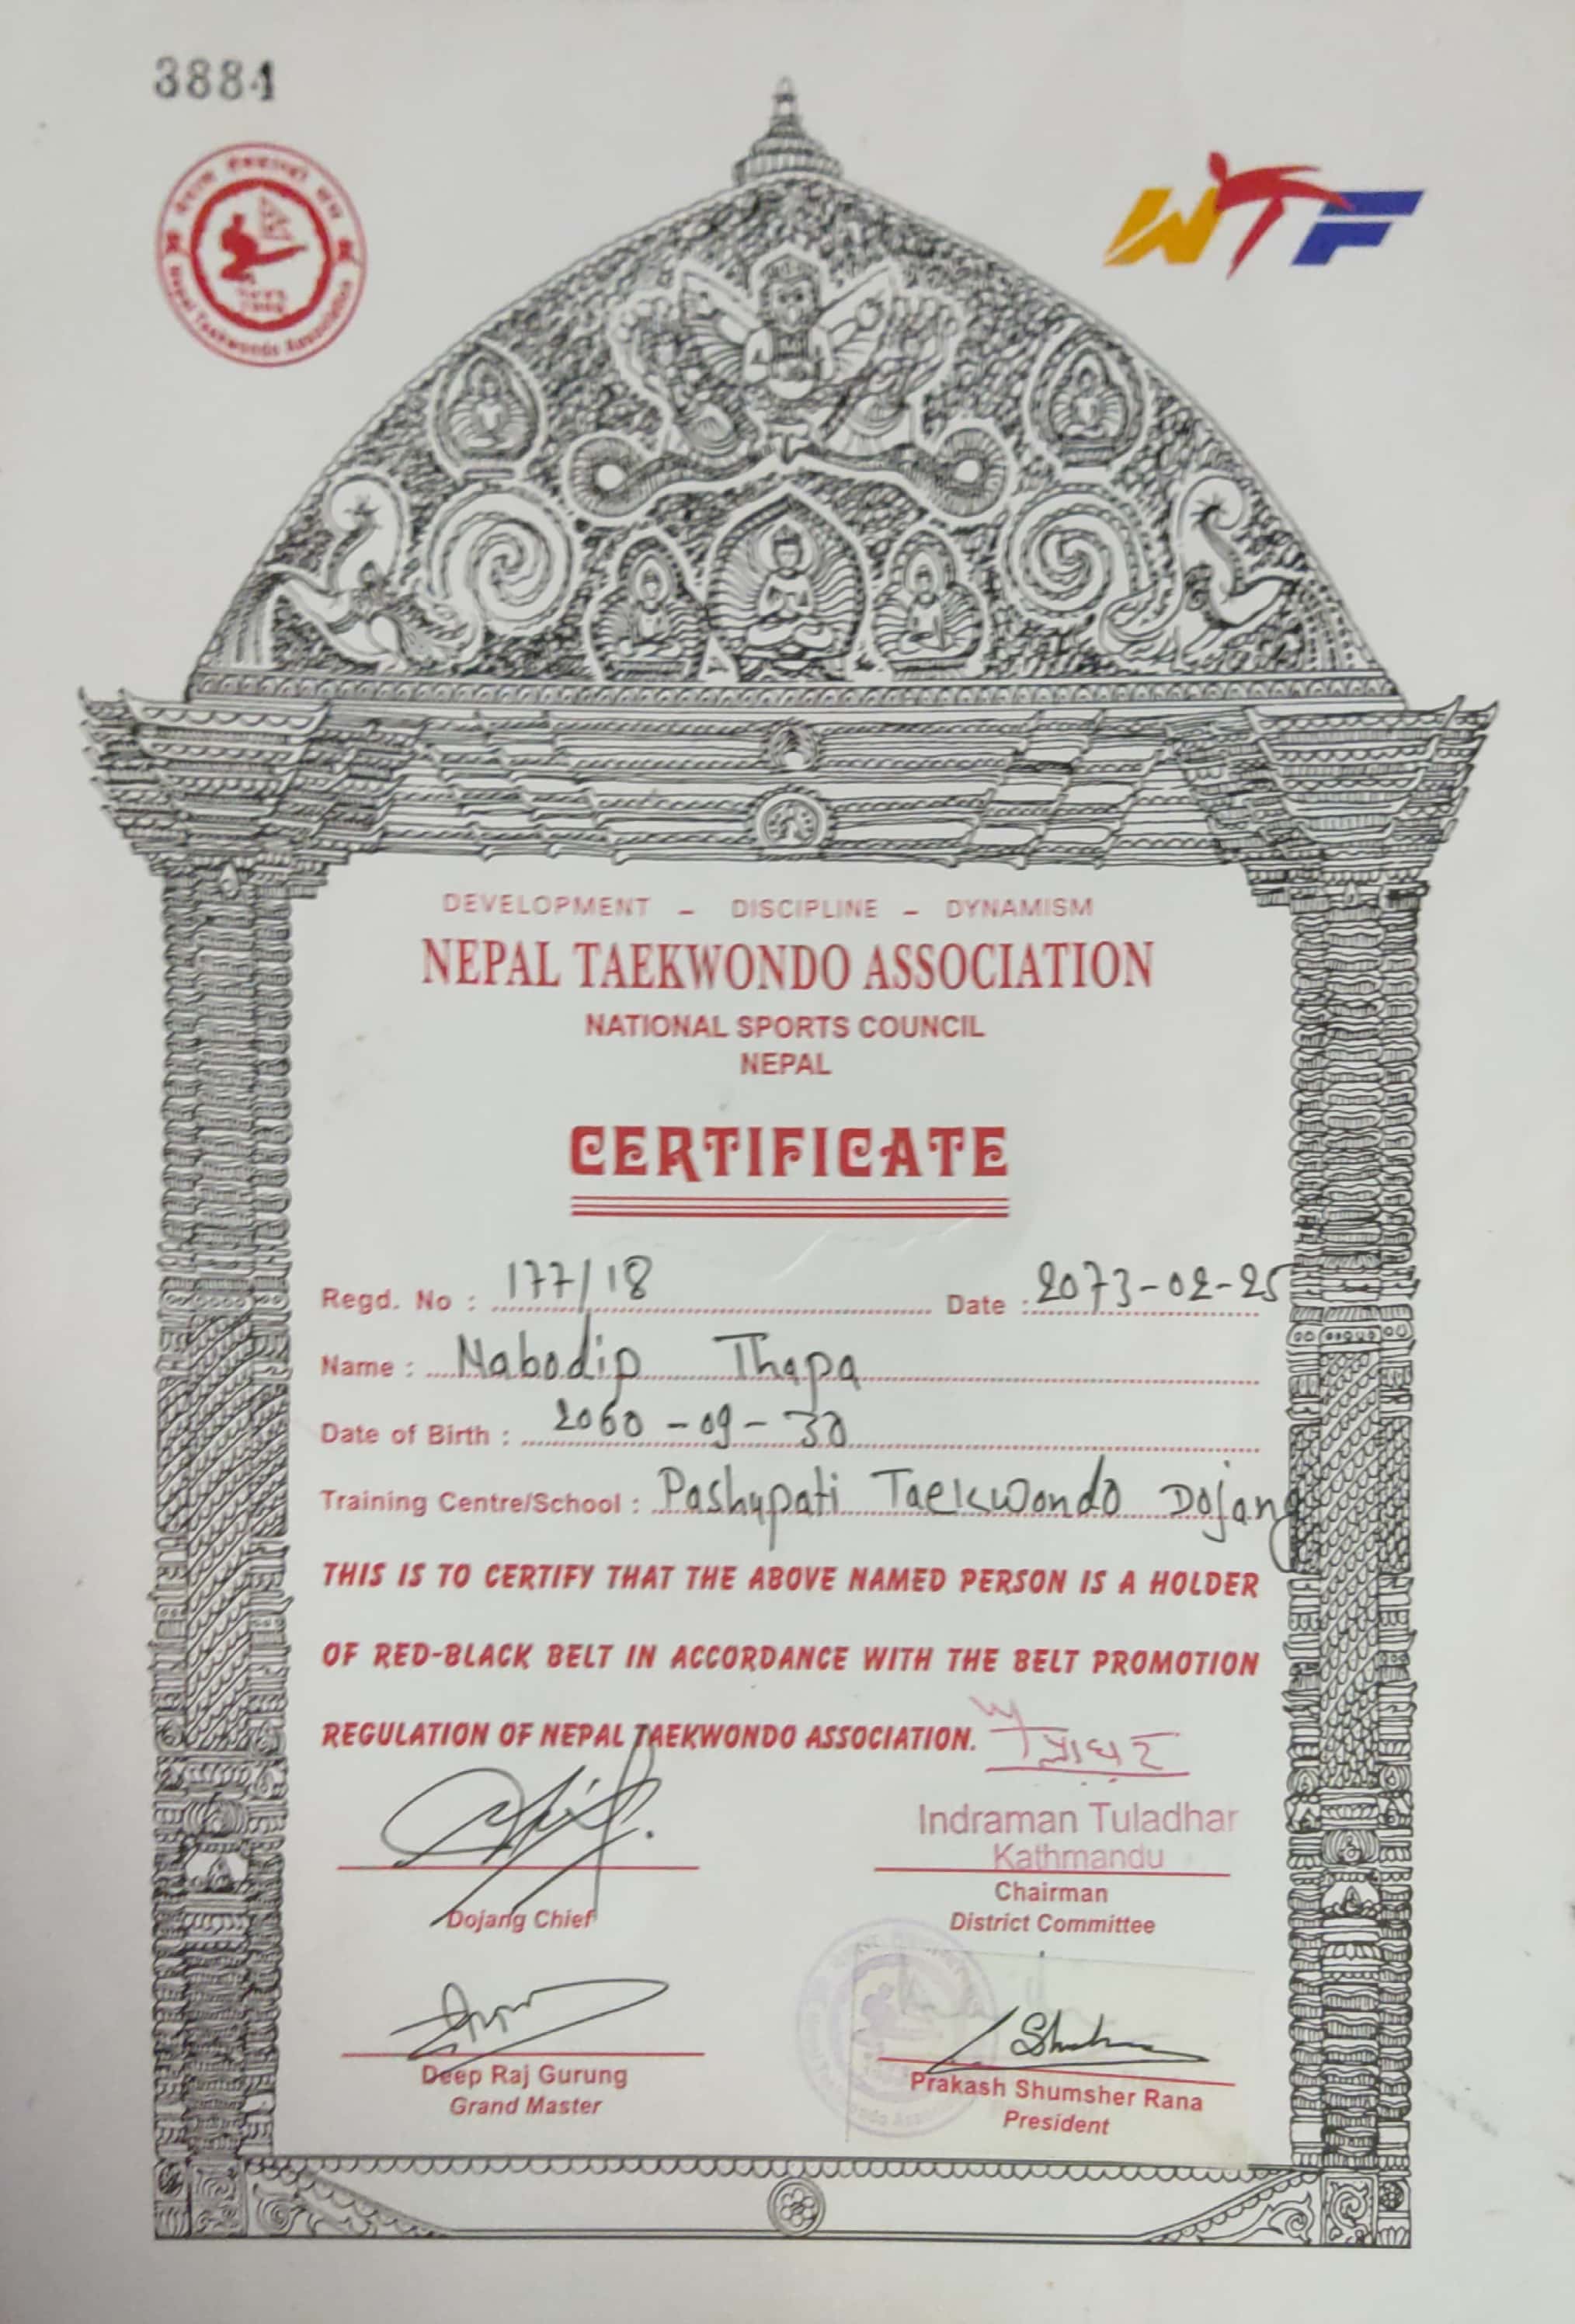 3884
नेपाल तेक्वान्दो संघ
Nepal Taekwondo Association
WTF
DEVELOPMENT – DISCIPLINE – DYNAMISM
NEPAL TAEKWONDO ASSOCIATION
NATIONAL SPORTS COUNCIL
NEPAL
CERTIFICATE
Regd. No : 177/18 Date : 2073-02-25
Name : Nabodip Thapa
Date of Birth : 2060-09-30
Training Centre/School : Pashupati Taekwondo Dojang
THIS IS TO CERTIFY THAT THE ABOVE NAMED PERSON IS A HOLDER
OF RED-BLACK BELT IN ACCORDANCE WITH THE BELT PROMOTION
REGULATION OF NEPAL TAEKWONDO ASSOCIATION.
Indraman Tuladhar
Kathmandu
Dojang Chief
Chairman
District Committee
Deep Raj Gurung
Grand Master
Prakash Shumsher Rana
President